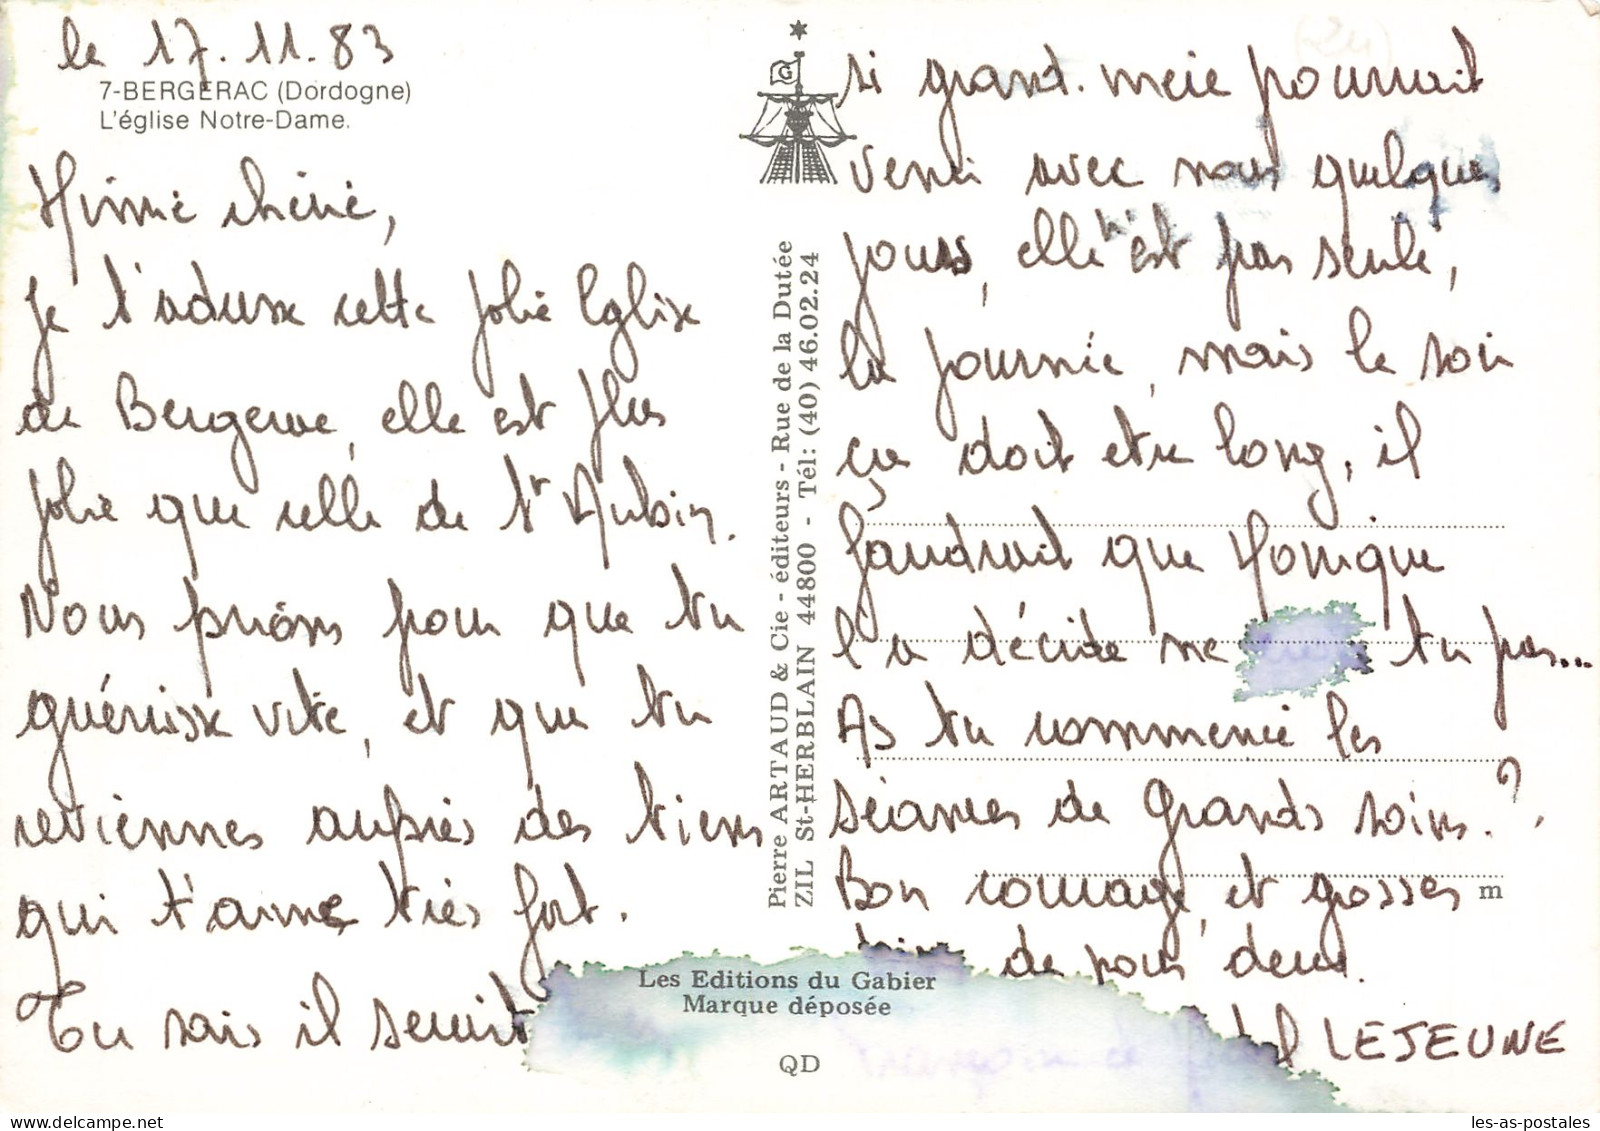 le 17.11.83
7-BERGERAC (Dordogne)
L'église Notre-Dame.
chérie,
Je t'adresse cette jolie Eglise
de Bergerac, elle est plus
jolie que celle de St Aubin.
Nous prions pour que tu
guérisse vite, et que tu
reviennes auprès des tiens
qui t'aime très fort.
Tu sais il serait
si grand-mère pourrait
venir avec nous quelques
jours, elle n'est pas seule,
la journée, mais le soir
ça doit etre long, il
faudrait que Monique
la décide ne tu pas...
As tu commencé les
séances de grands soins ?
Bon courage, et grosses
de nous deux.
LEJEUNE
Pierre ARTAUD & Cie - éditeurs - Rue de la Dutée
ZIL St-HERBLAIN 44800 - Tél: (40) 46.02.24
G
m
Les Editions du Gabier
Marque déposée
QD
les-as-postales